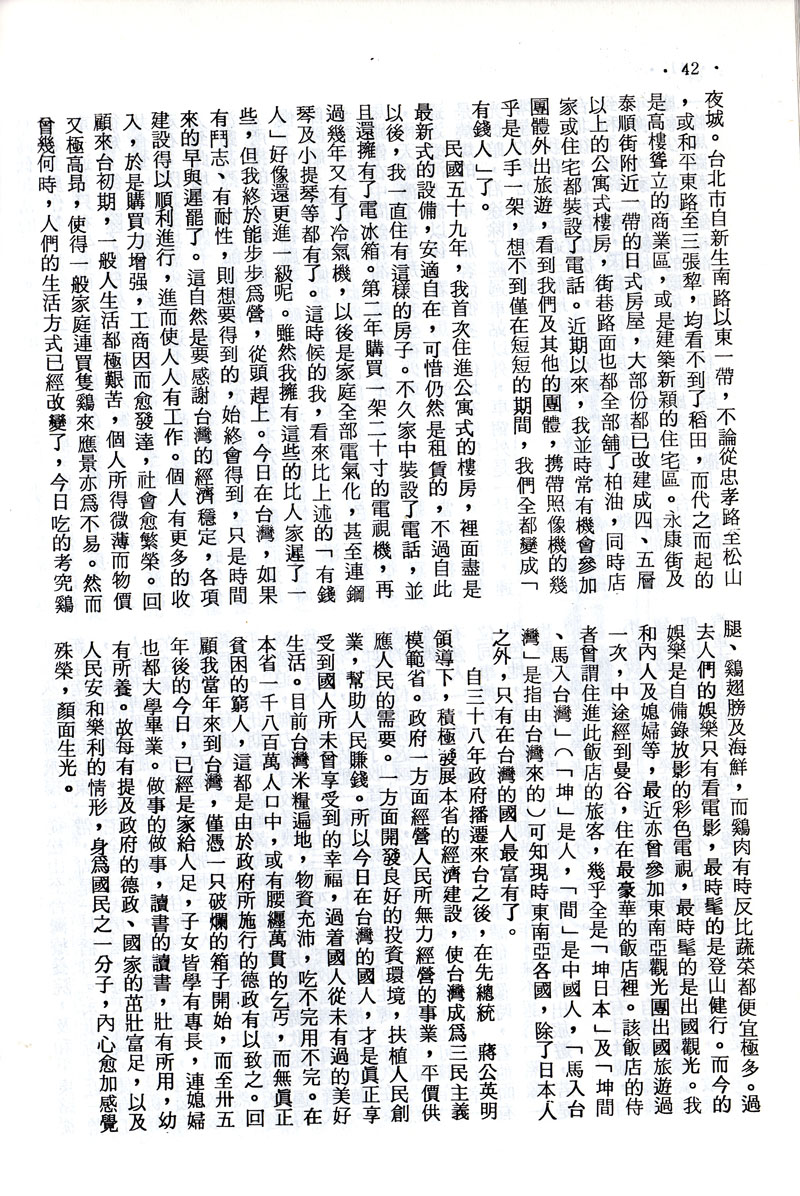 · 42 ·
夜城。台北市自新生南路以東一帶，不論從忠孝路至松山
，或和平東路至三張犂，均看不到了稻田，而代之而起的
是高樓聳立的商業區，或是建築新穎的住宅區。永康街及
泰順街附近一帶的日式房屋，大部份都已改建成四、五層
以上的公寓式樓房，街巷路面也都全部舖了柏油，同時店
家或住宅都裝設了電話。近期以來，我並時常有機會參加
團體外出旅遊，看到我們及其他的團體，携帶照像機的幾
乎是人手一架，想不到僅在短短的期間，我們全都變成「
有錢人」了。
民國五十九年，我首次住進公寓式的樓房，裡面盡是
最新式的設備，安適自在，可惜仍然是租賃的，不過自此
以後，我一直住有這樣的房子。不久家中裝設了電話，並
且還擁有了電冰箱。第二年購買一架二十寸的電視機，再
過幾年又有了冷氣機，以後是家庭全部電氣化，甚至連鋼
琴及小提琴等都有了。這時候的我，看來比上述的「有錢
人」好像還更進一級呢。雖然我擁有這些的比人家遲了一
些，但我終於能步步爲營，從頭趕上。今日在台灣，如果
有鬥志、有耐性，則想要得到的，始終會得到，只是時間
來的早與遲罷了。這自然是要感謝台灣的經濟穩定，各項
建設得以順利進行，進而使人人有工作。個人有更多的收
入，於是購買力增強，工商因而愈發達，社會愈繁榮。回
顧來台初期，一般人生活都極艱苦，個人所得微薄而物價
又極高昂，使得一般家庭連買隻鷄來應景亦爲不易。然而
曾幾何時，人們的生活方式已經改變了，今日吃的考究鷄
腿、鷄翅膀及海鮮，而鷄肉有時反比蔬菜都便宜極多。過
去人們的娛樂只有看電影，最時髦的是登山健行。而今的
娛樂是自備錄放影的彩色電視，最時髦的是出國觀光。我
和內人及媳婦等，最近亦曾參加東南亞觀光團出國旅遊過
一次，中途經到曼谷，住在最豪華的飯店裡。該飯店的侍
者曾謂住進此飯店的旅客，幾乎全是「坤日本」及「坤間
、馬入台灣」（「坤」是人，「間」是中國人，「馬入台
灣」是指由台灣來的）可知現時東南亞各國，除了日本人
之外，只有在台灣的國人最富有了。
自三十八年政府播遷來台之後，在先總統　蔣公英明
領導下，積極發展本省的經濟建設，使台灣成爲三民主義
模範省。政府一方面經營人民所無力經營的事業，平價供
應人民的需要。一方面開發良好的投資環境，扶植人民創
業，幫助人民賺錢。所以今日在台灣的國人，才是眞正享
受到國人所未曾享受到的幸福，過着國人從未有過的美好
生活。目前台灣米糧遍地，物資充沛，吃不完用不完。在
本省一千八百萬人口中，或有腰纒萬貫的乞丐，而無眞正
貧困的窮人，這都是由於政府所施行的德政有以致之。回
顧我當年來到台灣，僅憑一只破爛的箱子開始，而至卅五
年後的今日，已經是家給人足，子女皆學有專長，連媳婦
也都大學畢業。做事的做事，讀書的讀書，壯有所用，幼
有所養。故每有提及政府的德政、國家的茁壯富足，以及
人民安和樂利的情形，身爲國民之一分子，內心愈加感覺
殊榮，顏面生光。